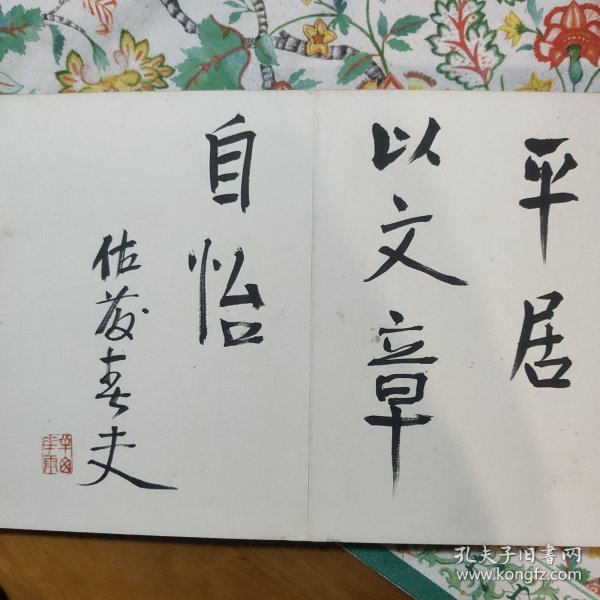 平居
以文章
自怡
佐藤春夫
孔夫子旧书网
www.kongfz.com